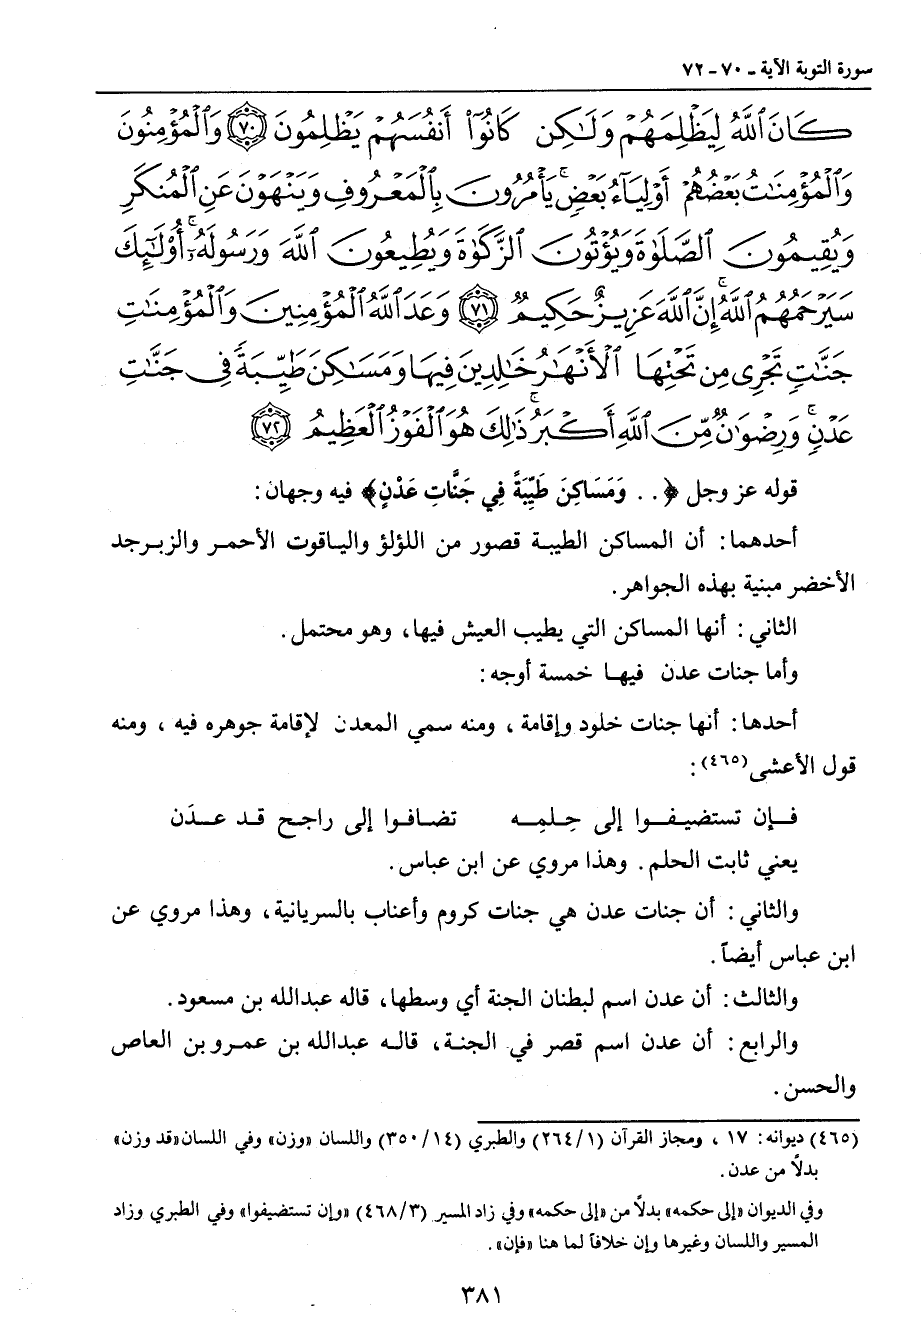 سورة التوبة الآية ـ ٧٠ ـ ٧٢
كَانَ ٱللَّهُ لِيَظْلِمَهُمْ وَلَٰكِن كَانُوٓا۟ أَنفُسَهُمْ يَظْلِمُونَ ٧٠ وَٱلْمُؤْمِنُونَ
وَٱلْمُؤْمِنَٰتُ بَعْضُهُمْ أَوْلِيَآءُ بَعْضٍ ۚ يَأْمُرُونَ بِٱلْمَعْرُوفِ وَيَنْهَوْنَ عَنِ ٱلْمُنكَرِ
وَيُقِيمُونَ ٱلصَّلَوٰةَ وَيُؤْتُونَ ٱلزَّكَوٰةَ وَيُطِيعُونَ ٱللَّهَ وَرَسُولَهُۥٓ ۚ أُو۟لَٰٓئِكَ
سَيَرْحَمُهُمُ ٱللَّهُ ۗ إِنَّ ٱللَّهَ عَزِيزٌ حَكِيمٌ ٧١ وَعَدَ ٱللَّهُ ٱلْمُؤْمِنِينَ وَٱلْمُؤْمِنَٰتِ
جَنَّٰتٍ تَجْرِى مِن تَحْتِهَا ٱلْأَنْهَٰرُ خَٰلِدِينَ فِيهَا وَمَسَٰكِنَ طَيِّبَةً فِى جَنَّٰتِ
عَدْنٍ ۚ وَرِضْوَٰنٌ مِّنَ ٱللَّهِ أَكْبَرُ ۚ ذَٰلِكَ هُوَ ٱلْفَوْزُ ٱلْعَظِيمُ ٧٢
قوله عز وجل ﴿. . وَمَسَاكِنَ طَيِّبَةً فِي جَنَّاتِ عَدْنٍ﴾ فيه وجهان:
أحدهما: أن المساكن الطيبة قصور من اللؤلؤ والياقوت الأحمر والزبرجد
الأخضر مبنية بهذه الجواهر.
الثاني: أنها المساكن التي يطيب العيش فيها، وهو محتمل.
وأما جنات عدن فيها خمسة أوجه:
أحدها: أنها جنات خلود وإقامة، ومنه سمي المعدن لإقامة جوهره فيه، ومنه
قول الأعشى(٤٦٥):
فـإن تستضيـفـوا إلى حِـلمِـه تضـافـوا إلى راجـح قـد عـدَن
يعني ثابت الحلم. وهذا مروي عن ابن عباس.
والثاني: أن جنات عدن هي جنات كروم وأعناب بالسريانية، وهذا مروي عن
ابن عباس أيضاً.
والثالث: أن عدن اسم لبطنان الجنة أي وسطها، قاله عبدالله بن مسعود.
والرابع: أن عدن اسم قصر في الجنة، قاله عبدالله بن عمرو بن العاص
والحسن.
(٤٦٥) ديوانه: ١٧، ومجاز القرآن (٢٦٤/١) والطبري (٣٥٠/١٤) واللسان «وزن» وفي اللسان «قد وزن»
بدلاً من عدن.
وفي الديوان «إلى حكمه» بدلاً من «إلى حكمه» وفي زاد المسير (٤٦٨/٣) «وإن تستضيفوا» وفي الطبري وزاد
المسير واللسان وغيرها وإن خلافاً لما هنا «فإن».
٣٨١